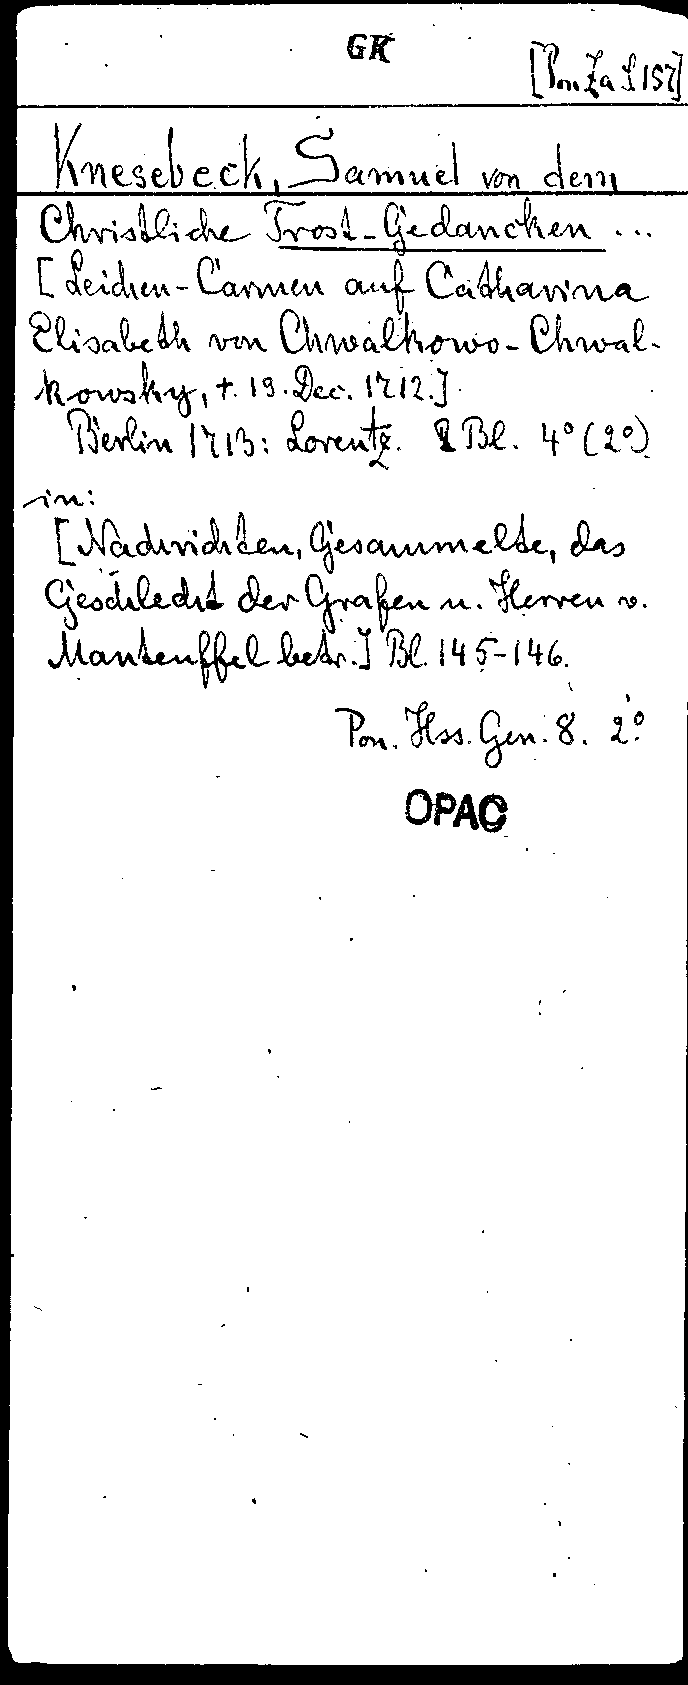 GK
[Pon Za S 157]
Knesebeck, Samuel von dem
Christliche Trost-Gedancken ...
[Leichen-Carmen auf Catharina
Elisabeth von Chwalkowo-Chwal-
kowsky, †. 19. Dec. 1712.]
Berlin 1713: Lorentz. 2 Bl. 4° (2°)
in:
[Nachrichten, Gesammelte, das
Geschlecht der Grafen u. Herren v.
Manteuffel betr.] Bl. 145-146.
Pon. Hss. Gen. 8. 2°
OPAC